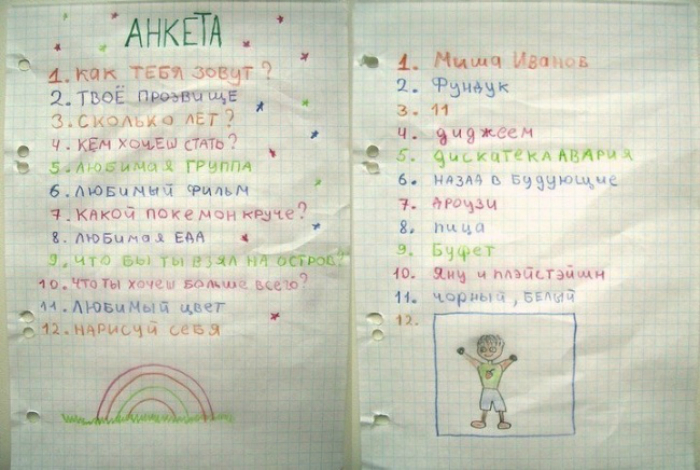 АНКЕТА
1. КАК ТЕБЯ ЗОВУТ?
2. ТВОЁ ПРОЗВИЩЕ
3. СКОЛЬКО ЛЕТ?
4. КЕМ ХОЧЕШ СТАТЬ?
5. ЛЮБИМАЯ ГРУППА
6. ЛЮБИМЫЙ ФИЛЬМ
7. КАКОЙ ПОКЕМОН КРУЧЕ?
8. ЛЮБИМАЯ ЕДА
9. ЧТО БЫ ТЫ ВЗЯЛ НА ОСТРОВ?
10. ЧТО ТЫ ХОЧЕШ БОЛЬШЕ ВСЕГО?
11. ЛЮБИМЫЙ ЦВЕТ
12. НАРИСУЙ СЕБЯ
1. Миша Иванов
2. Фундук
3. 11
4. диджеем
5. ДИСКАТЕКА АВАРИЯ
6. НАЗАД В БУДУЮЩИЕ
7. АРОУЗИ
8. пица
9. Буфет
10. Яну и плэйстэйшн
11. чорный, БЕЛЫЙ
12.